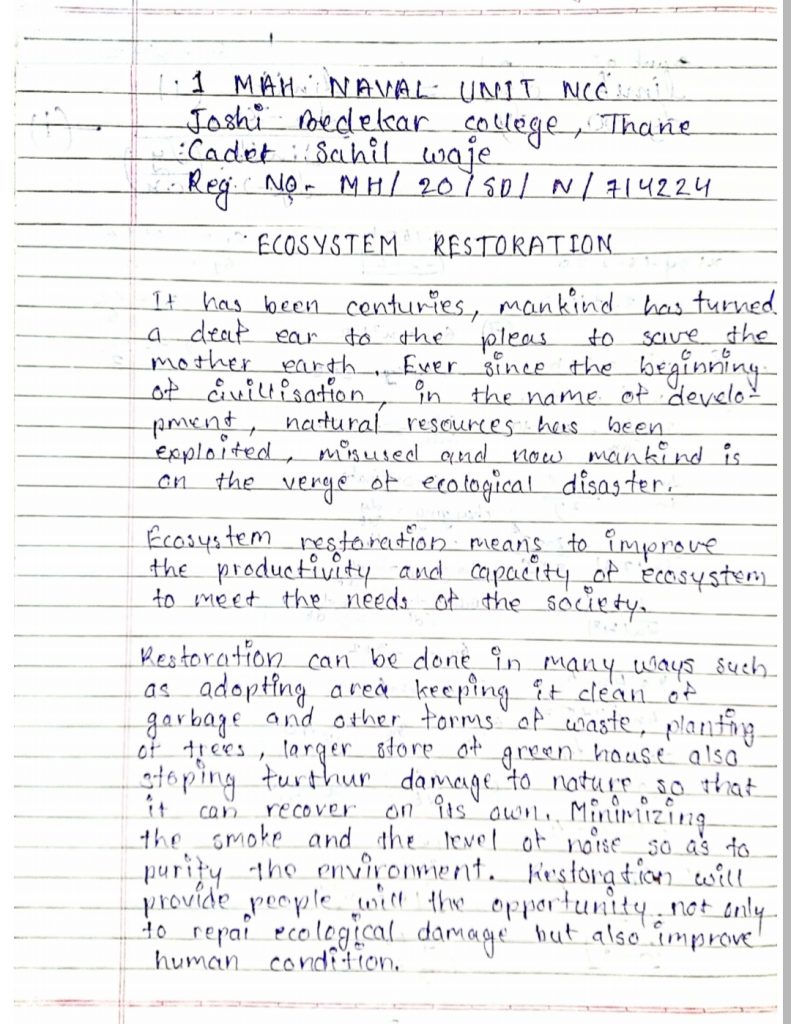 1 MAH NAVAL UNIT NCC
Joshi Bedekar college, Thane
:Cadet : Sahil waje
Reg NO- MH/ 20/SD/ N/714224
ECOSYSTEM RESTORATION
It has been centuries, mankind has turned
a deaf ear to the pleas to save the
mother earth. Ever since the beginning
of civillisation, in the name of develo-
pment, natural resources has been
exploited, misused and now mankind is
on the verge of ecological disaster.
Ecosystem restoration means to improve
the productivity and capacity of ecosystem
to meet the needs of the society.
Restoration can be done in many ways such
as adopting area keeping it clean of
garbage and other forms of waste, planting
of trees, larger store of green house also
stoping furthur damage to nature so that
it can recover on its own. Minimizing
the smoke and the level of noise so as to
purify the environment. Restoration will
provide people will the opportunity not only
to repai ecological damage but also improve
human condition.